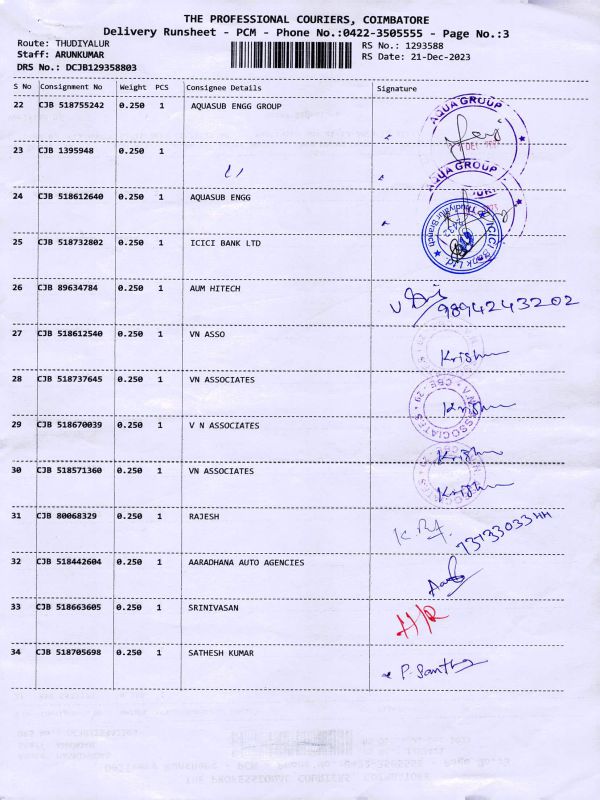 THE PROFESSIONAL COURIERS, COIMBATORE
Delivery Runsheet - PCM - Phone No.:0422-3505555 - Page No.:3
Route: THUDIYALUR
RS No.: 1293588
Staff: ARUNKUMAR
RS Date: 21-Dec-2023
DRS No.: DCJB129358803
S No Consignment No Weight PCS Consignee Details Signature
22 CJB 518755242 0.250 1 AQUASUB ENGG GROUP
AQUA GROUP
23 CJB 1395948 0.250 1
AQUA GROUP
24 CJB 518612640 0.250 1 AQUASUB ENGG
25 CJB 518732802 0.250 1 ICICI BANK LTD
ICICI Bank Ltd. Thudiyalur Branch
26 CJB 89634784 0.250 1 AUM HITECH
9894243202
27 CJB 518612540 0.250 1 VN ASSO
Krishn
28 CJB 518737645 0.250 1 VN ASSOCIATES
VN ASSOCIATES CBE - 29
Krishn
29 CJB 518670039 0.250 1 V N ASSOCIATES
Krishn
30 CJB 518571360 0.250 1 VN ASSOCIATES
Krishn
31 CJB 80068329 0.250 1 RAJESH
32 CJB 518442604 0.250 1 AARADHANA AUTO AGENCIES
33 CJB 518663605 0.250 1 SRINIVASAN
H/R
34 CJB 518705698 0.250 1 SATHESH KUMAR
P. Santhy